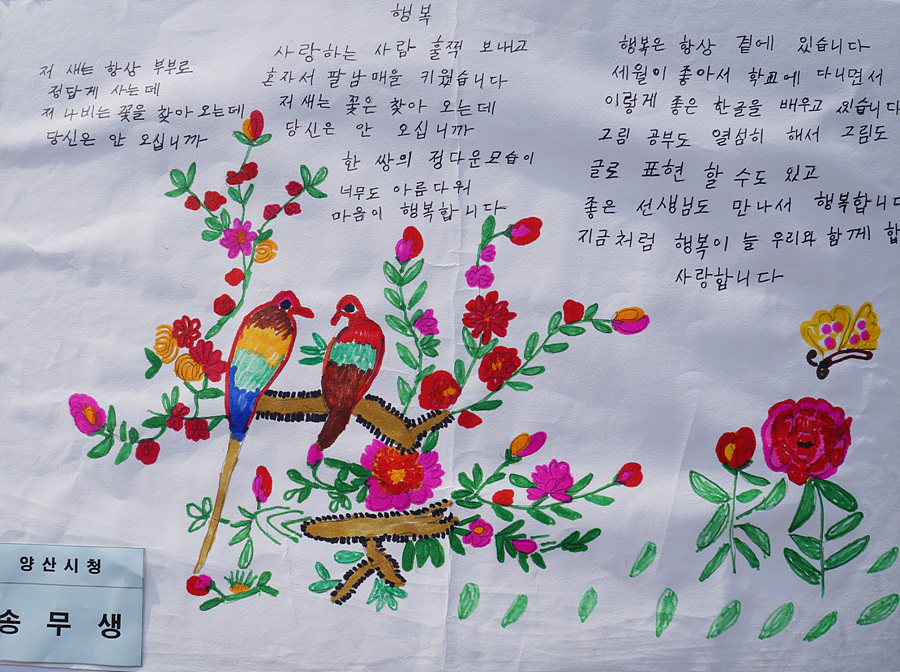 행복
저 새는 항상 부부로
정답게 사는데
저 나비는 꽃을 찾아 오는데
당신은 안 오십니까
사랑하는 사람 훌쩍 보내고
혼자서 팔남매을 키웠습니다
저 새는 꽃은 찾아 오는데
당신은 안 오십니까
한 쌍의 정다운모습이
너무도 아름다워
마음이 행복합니다
행복은 항상 곁에 있습니다
세월이 좋아서 학교에 다니면서
이렇게 좋은 한글을 배우고 있습니다
그림 공부도 열섬히 해서 그림도
글로 표현 할 수도 있고
좋은 선생님도 만나서 행복합니다
지금처럼 행복이 늘 우리와 함께 합
사랑합니다
양산시청
송무생